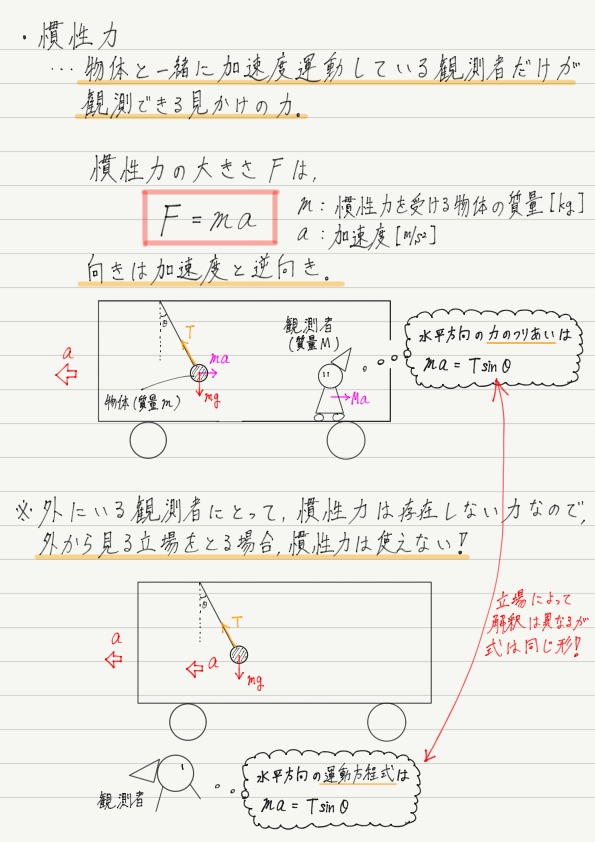 ・慣性力
… 物体と一緒に加速度運動している観測者だけが
観測できる見かけの力。
慣性力の大きさ F は,
F = ma
m : 慣性力を受ける物体の質量 [kg]
a : 加速度 [m/s²]
向きは加速度と逆向き。
θ
T
a
ma
mg
物体(質量 m)
観測者
(質量 M)
Ma
水平方向の力のつりあいは
ma = T sin θ
※ 外にいる観測者にとって, 慣性力は存在しない力なので,
外から見る立場をとる場合, 慣性力は使えない!
θ
T
a
a
mg
立場によって
解釈は異なるが
式は同じ形!
観測者
水平方向の運動方程式は
ma = T sin θ